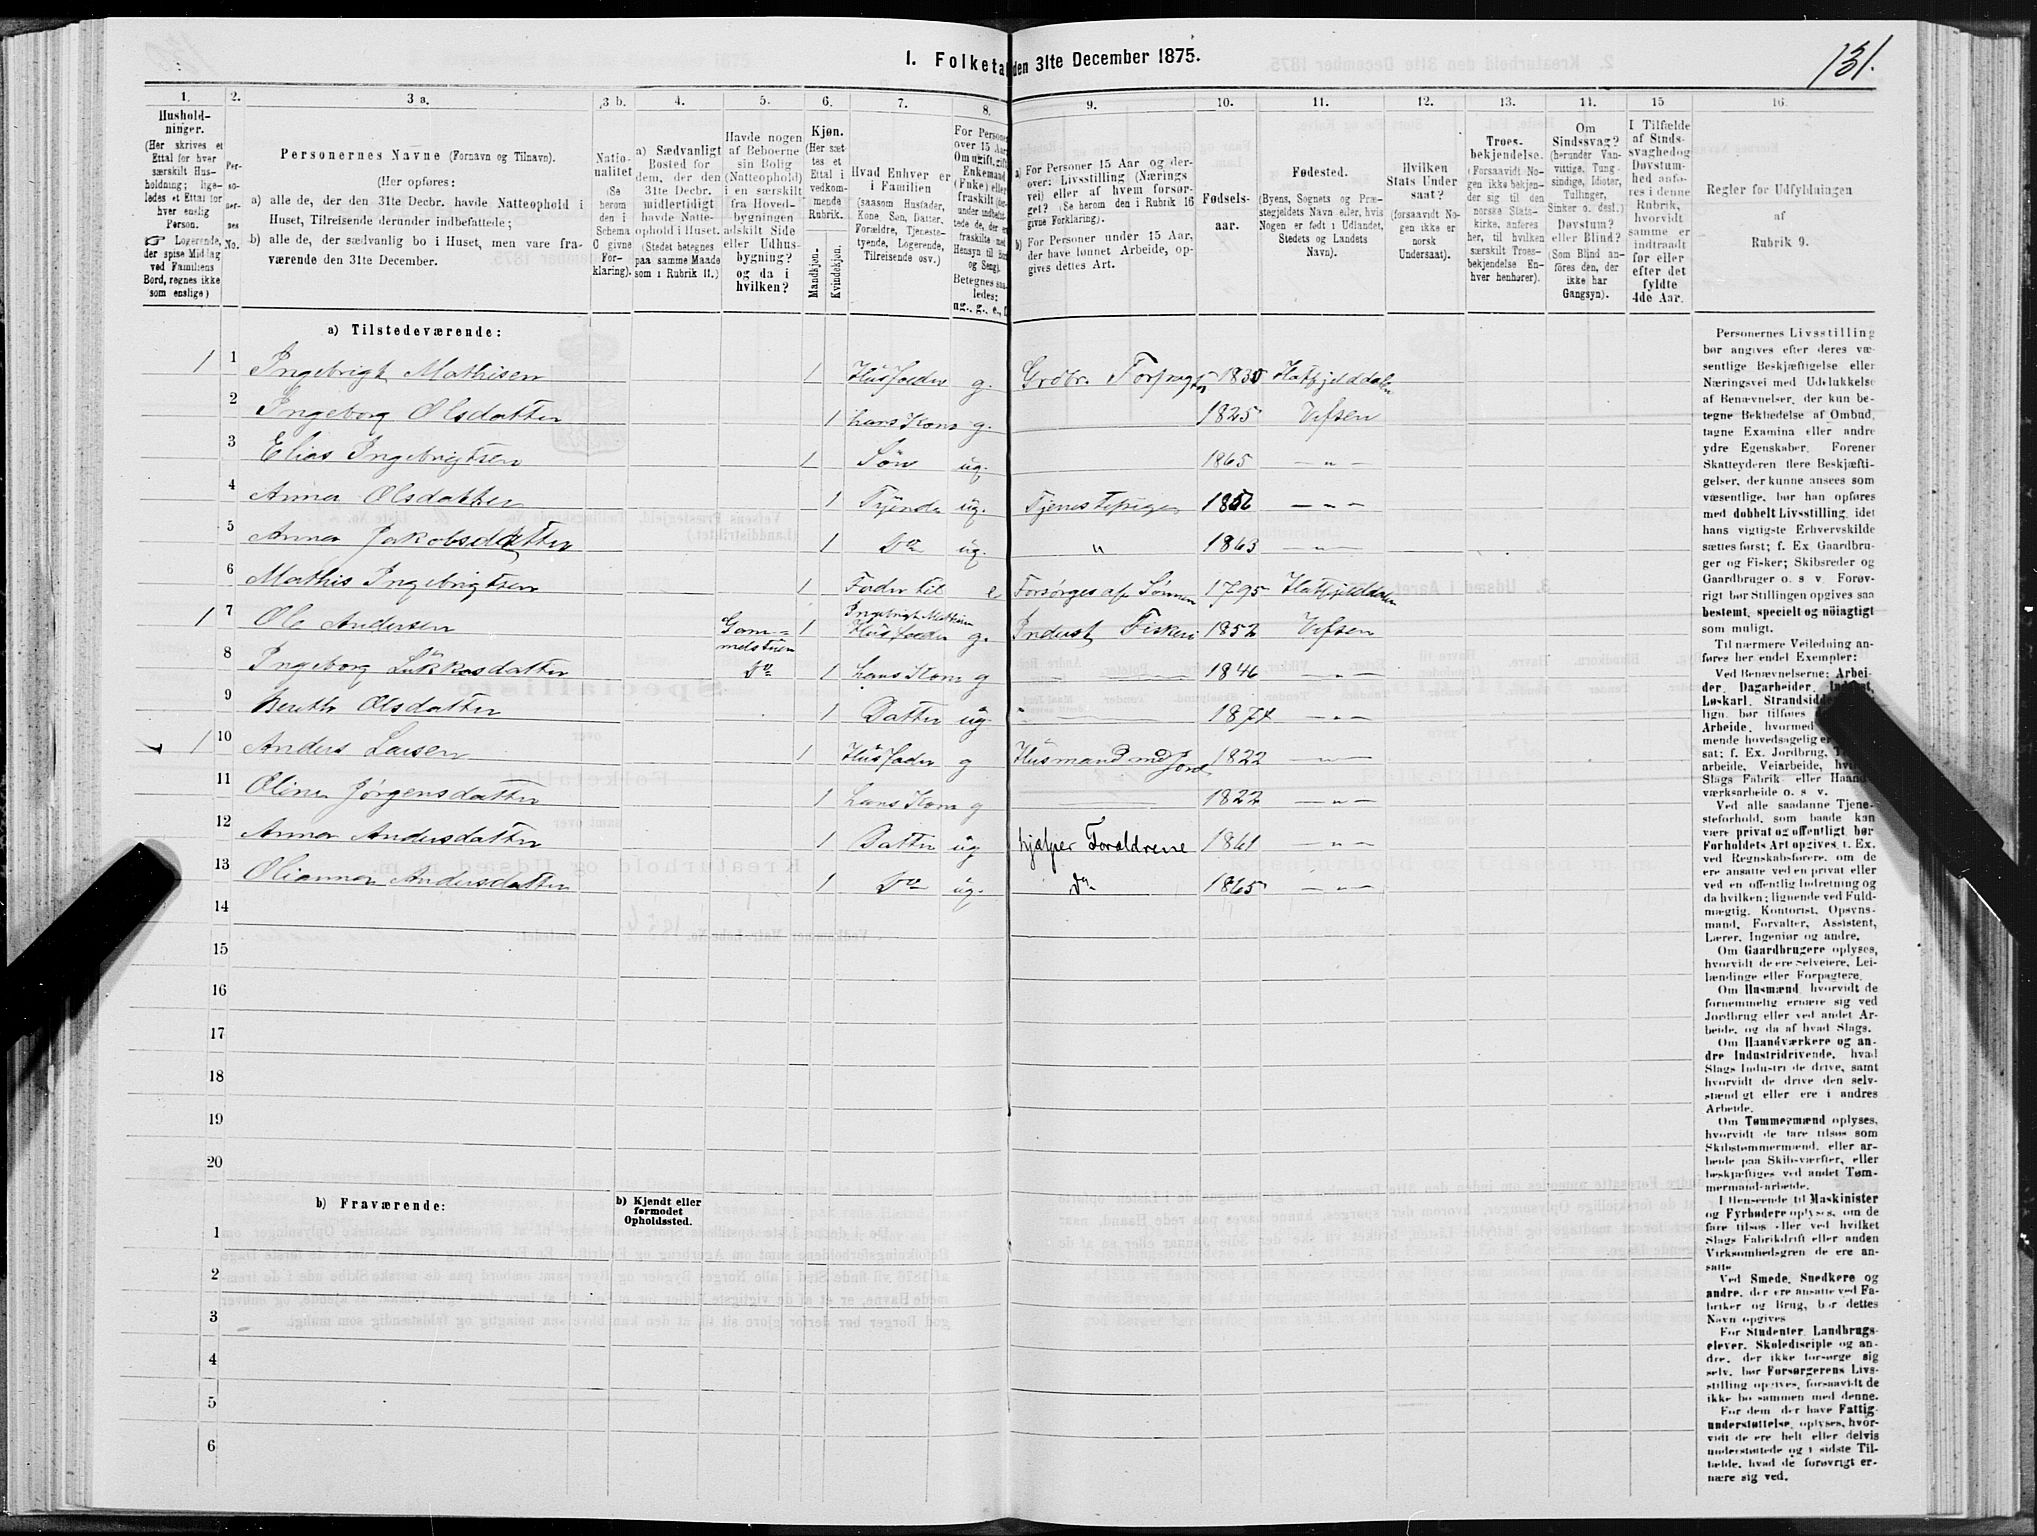 131.
I. Folketal den 31te December 1875.
1. 2. 3 a. 3 b. 4. 5. 6. 7. 8. 9. 10. 11. 12. 13. 14. 15 16.
Hushold-
ninger.
(Her skrives et
Ettal for hver
særskilt Hus-
holdning; lige-
ledes et Ettal for
hver enslig
Person.
☞ Logerende,
der spise Middag
ved Familiens
Bord, regnes ikke
som enslige.)
Per-
so-
ner-
nes
No.
Personernes Navne (Fornavn og Tilnavn).
(Her opføres:
a) alle de, der den 31te Decbr. havde Natteophold i
Huset, Tilreisende derunder indbefattede;
b) alle de, der sædvanlig bo i Huset, men vare fra-
værende den 31te December.
Natio-
nalitet
(Se
herom
den i
Schema
C givne
For-
klaring).
a) Sædvanligt
Bosted for
dem, der den
31te Decbr.
midlertidigt
havde Natte-
ophold i Huset.
(Stedet betegnes
paa samme Maade
som i Rubrik 11.)
Havde nogen
af Beboerne
sin Bolig
(Natteophold)
i en særskilt
fra Hoved-
bygningen
adskilt Side
eller Udhus-
bygning?
og da i
hvilken?
Kjøn.
(Her sæt-
tes et
Ettal i
vedkom-
mende
Rubrik.
Mandkjøn.
Kvindekjøn.
Hvad Enhver er
i Familien
(saasom Husfader,
Kone, Søn, Datter,
Forældre, Tjeneste-
tyende, Logerende,
Tilreisende osv.)
For Personer
over 15 Aar:
Om ugift, gift,
Enkemand
(Enke) eller
fraskilt
Betegnes saa-
ledes:
ug., g., e., f.
a) For Personer 15 Aar og der-
over: Livsstilling (Nærings
vei) eller af hvem forsør-
get? (Se herom den i Rubrik 16
givne Forklaring).
b) For Personer under 15 Aar,
der have lønnet Arbeide, op-
gives dettes Art.
Fødsels-
aar.
Fødested.
(Byens, Sognets og Præ-
stegjeldets Navn eller, hvis
Nogen er født i Udlandet,
Stedets og Landets
Navn).
Hvilken
Stats Under
saat?
(forsaavidt No-
gen ikke er
norsk
Undersaat).
Troes-
bekjendelse.
(Forsaavidt No-
gen ikke bekjen-
der sig til den
norske Stats-
kirke, anføres
her, til hvilken
særskilt Troes-
bekjendelse En-
hver henhører).
Om
Sindssvag?
(herunder Van-
vittige, Tung-
sindige, Idioter,
Tullinger,
Sinker o. desl.)
Døvstum?
eller Blind?
(Som Blind an-
føres den, der
ikke har
Gangsyn).
I Tilfælde
af Sinds-
svaghed og
Døvstum-
hed anfø-
res i denne
Rubrik,
hvorvidt
samme er
indtraadt
før eller
efter det
fyldte
4de Aar.
Regler for Udfyldningen
af
Rubrik 9.
a) Tilstedeværende:
1 1 Ingebrigt Mathisen 1 Husfader g. Grdbr. 1830 Hatfjelddalen
2 Ingeborg Olsdatter 1 hans Kone g. 1825 Vefsen
3 Elias Ingebrigtsen 1 Søn ug. 1865 — „ —
4 Anna Olsdatter 1 Tyende ug. Tjenestepige 1852 — „ —
5 Anna Jakobsdatter 1 Do ug. „ 1863 — „ —
6 Mathis Ingebrigtsen 1 Fader til Ingebrigt Mathisen e Forsørges af Sønnen 1795 Hatfjelddalen
1 7 Ole Andersen Gam-melstuen 1 Husfader g. Inderst Fiskeri 1852 Vefsen
8 Ingeborg Lukkasdatter Do 1 hans Kone g 1846 — „ —
9 Berith Olsdatter 1 Datter ug. 1874 — „ —
1 10 Anders Larsen 1 Husfader g Husmand med Jord 1822 — „ —
11 Olina Jørgensdatter 1 hans Kone g 1822 — „ —
12 Anna Andersdatter 1 Datter ug hjælper Foraldrene 1861 — „ —
13 Olianna Andersdatter 1 Do ug. Do 1865 — „ —
14
15
16
17
18
19
20
b) Fraværende:
b) Kjendt eller
formodet
Opholdssted.
1
2
3
4
5
6
Personernes Livsstilling
bør angives efter deres væ-
sentlige Beskjæftigelse eller
Næringsvei med Udelukkelse
af Benævnelser, der kun be-
tegne Beklædelse af Ombud,
tagne Examina eller andre
ydre Egenskaber. Forener
Skatteyderen flere Beskjæfti-
gelser, der kunne ansees som
væsentlige, bør han opføres
med dobbelt Livsstilling, idet
hans vigtigste Erhvervskilde
sættes først; f. Ex. Gaardbru-
ger og Fisker; Skibsreder og
Gaardbruger o. s v. Forøv-
rigt bør Stillingen opgives saa
bestemt, specielt og nøiagtigt
som muligt.
Til nærmere Veiledning an-
føres her endel Exempler:
Ved Benævnelserne: Arbei-
der, Dagarbeider,
Løskarl, Strandsidder
lign. bør tilføres
Arbeide, hvormed
mende hovedsagelig er
sat; f. Ex. Jordbrug,
arbeide, Veiarbeide,
Slags Fabrik eller
værksarbeide o. s v.
Ved alle saadanne Tjene-
steforhold, som baade kan
være privat og offentligt, bør
Forholdets Art opgives, t. Ex.
ved Regnskabsførere, om de
ere ansatte ved en privat eller
ved en offentlig Indretning og
da hvilken; lignende ved Fuld-
mægtig, Kontorist, Opsyns-
mand, Forvalter, Assistent,
Lærer, Ingeniør og andre.
Om Gaardbrugere oplyses,
hvorvidt de ere Selveiere, Lei-
lændinge eller Forpagtere.
Om Husmænd, hvorvidt de
fornemmelig ernære sig ved
Jordbrug eller ved andet Ar-
beide, og da af hvad Slags.
Om Haandværkere og an-
dre Industridrivende, hvad
Slags Industri de drive, samt
hvorvidt de drive den selv-
stændigt eller ere i andres
Arbeide.
Om Tømmermænd oplyses,
hvorvidt de fare tilsøs som
Skibstømmermænd, eller ar-
beide paa Skibsværfter, eller
beskjæftiges ved andet Tøm-
mermandsarbeide.
I Henseende til Maskinister
og Fyrbødere oplyses, om de
fare tilsøs eller ved hvilket
Slags Fabrikdrift eller anden
Virksomhedsgren de ere an-
satte
Ved Smede, Snedkere og
andre, der ere ansatte ved Fa-
briker og Brug, bør dettes
Navn opgives
For Studenter, Landbrugs-
elever, Skoledisciple og an-
dre, der ikke forsørge sig
selv, bør Forsørgerens Livs-
stilling opgives, forsaavidt de
ikke bo sammen med denne.
For dem, der have Fattig-
understøttelse, oplyses, hvor-
vidt de ere helt eller delvis
understøttede og i sidste Til-
fælde, hvad de forøvrigt er-
nære sig ved.